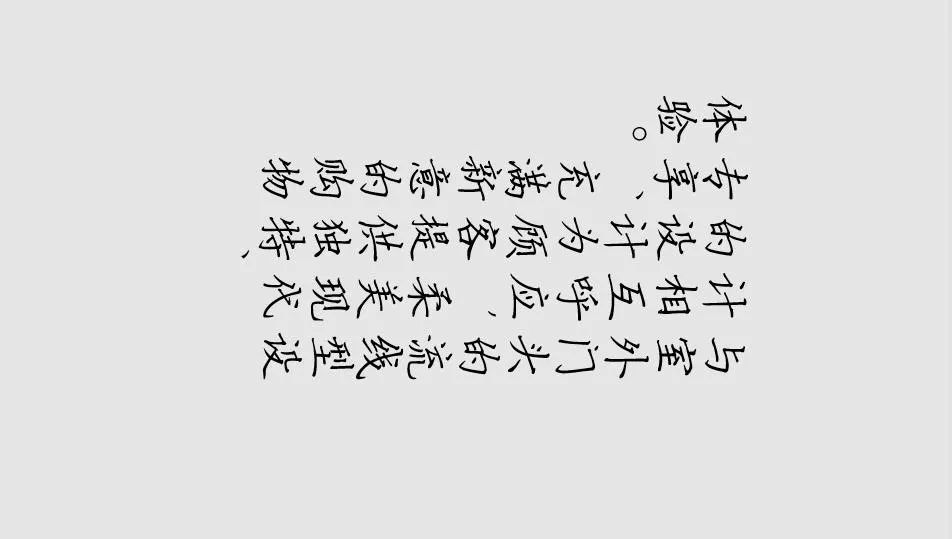 与室外门头的流线型设
计相互呼应、柔美现代
的设计为顾客提供独特、
专享、充满新意的购物
体验。